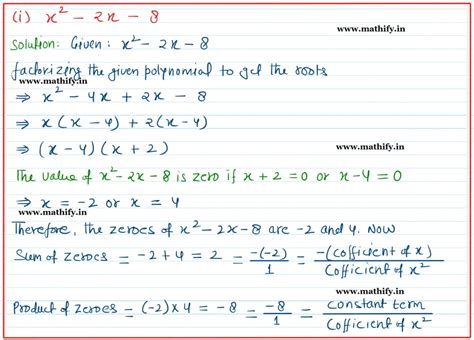 (i) x² - 2x - 8
Solution: Given: x² - 2x - 8
www.mathify.in
factorizing the given polynomial to get the roots
www.mathify.in
⇒ x² - 4x + 2x - 8
⇒ x(x - 4) + 2(x - 4)
⇒ (x - 4)(x + 2) www.mathify.in
The value of x² - 2x - 8 is zero if x + 2 = 0 or x - 4 = 0
⇒ x = -2 or x = 4
www.mathify.in
Therefore, the zeroes of x² - 2x - 8 are -2 and 4. Now
www.mathify.in
Sum of zeroes = -2 + 4 = 2 = -(-2)/1 = -(cofficient of x)/Cofficient of x²
www.mathify.in
Product of zeroes = (-2) x 4 = -8 = -8/1 = constant term/Cofficient of x²